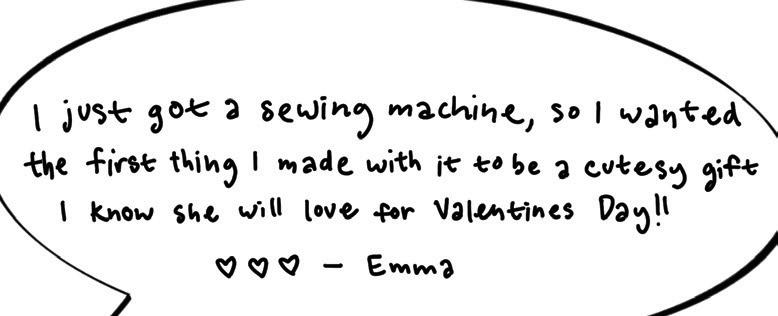 I just got a sewing machine, so I wanted
the first thing I made with it to be a cutesy gift
I know she will love for Valentines Day!!
♡ ♡ ♡ – Emma